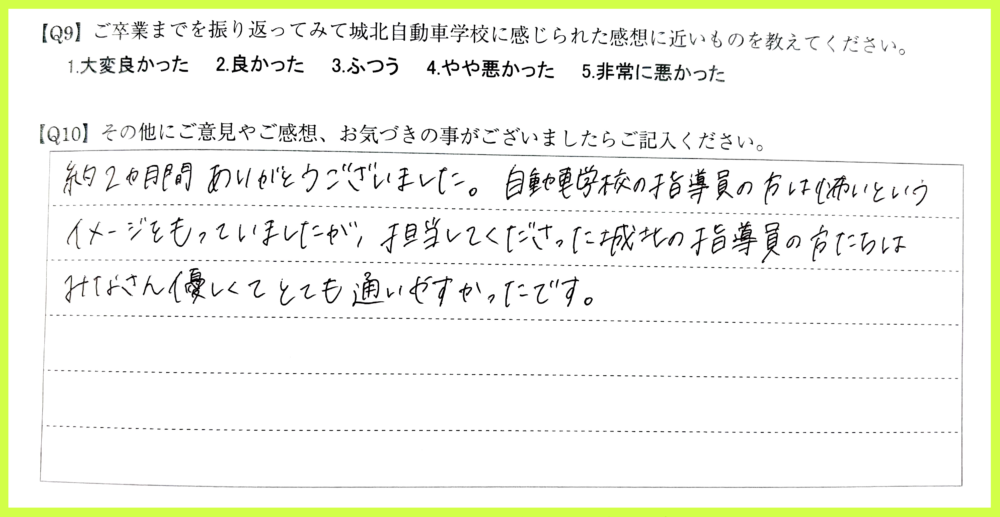 【Q9】ご卒業までを振り返ってみて城北自動車学校に感じられた感想に近いものを教えてください。
1.大変良かった 2.良かった 3.ふつう 4.やや悪かった 5.非常に悪かった
【Q10】その他にご意見やご感想、お気づきの事がございましたらご記入ください。
約2ヵ月間ありがとうございました。自動車学校の指導員の方は怖いという
イメージをもっていましたが、担当してくださった城北の指導員の方たちは
みなさん優しくてとても通いやすかったです。